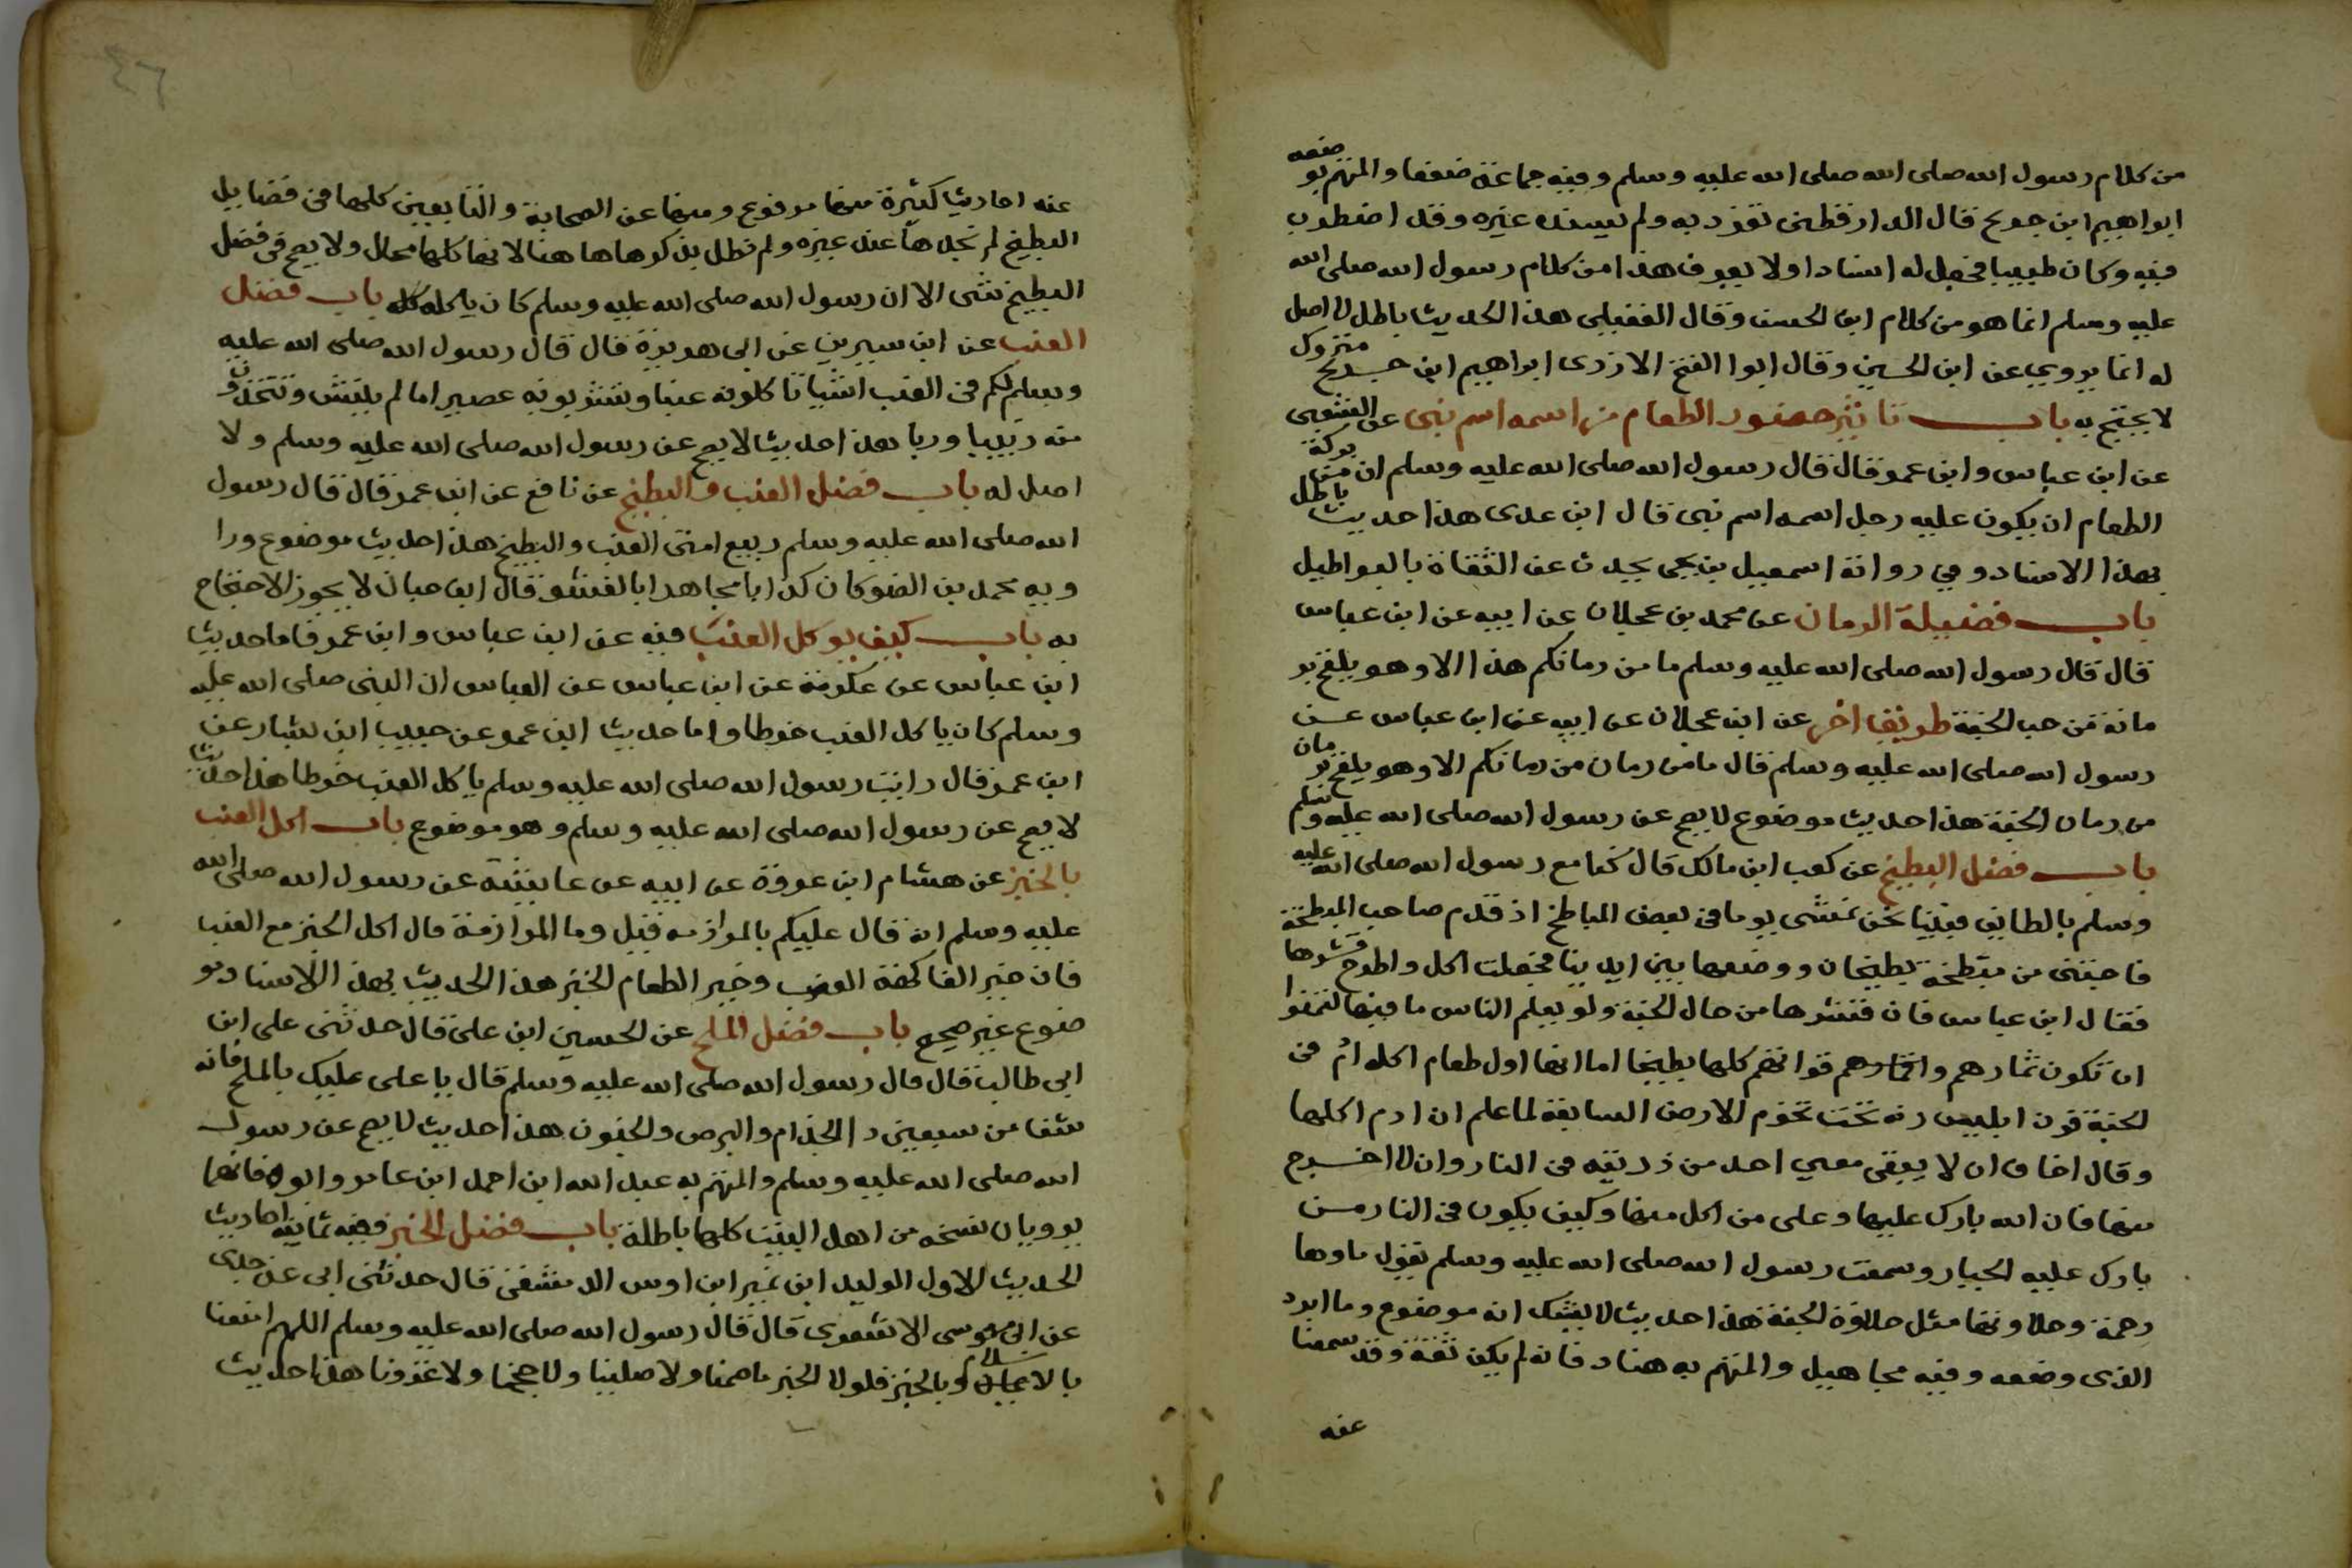 من كلام رسول الله صلى الله صلى الله عليه وسلم وفيه جماعة ضعفا والمتهم بو ضعه
ابراهيم ابن جريج قال الدارقطنى تفرد به ولم يسنده غيره وقد اضطرب
فيه وكان طبيبا فجعل له اسنادا ولا يعرف هذا من كلام رسول الله صلى الله
عليه وسلم انما هو من كلام ابن الحسن وقال العقيلى هذا الحديث باطل لا اصل
له انما يروي عن ابن الحسين وقال ابوا الفتح الازدى ابراهيم ابن جريج متروك
لا يحتج به باب تاثير حضور الطعام من اسمه اسم نبى عن الشعبى
عن ابن عباس وابن عمر قال قال رسول الله صلى الله عليه وسلم ان من بركة
الطعام ان يكون عليه رجل اسمه اسم نبى قال ابن عدى هذا حديث باطل
بهذا الاسناد وفي رواته اسمعيل بن يحيى يحدث عن الثقاة بالبواطيل
باب فضيلة الرمان عن محمد بن عجلان عن ابيه عن ابن عباس
قال قال رسول الله صلى الله عليه وسلم ما من رمانكم هذا الا وهو يلقح بر
مانة من حب الجنة طريق اخر عن ابن عجلان عن ابيه عن ابن عباس عن
رسول الله صلى الله عليه وسلم قال ما من رمان من رمانكم الا وهو يلقح بر مان
من رمان الجنة هذا حديث موضوع لا يصح عن رسول الله صلى الله عليه وسلم
باب فضل البطيخ عن كعب ابن مالك قال كنا مع رسول الله صلى الله عليه
وسلم بالطايف فبينا نحن نمشى يوما فى بعض المباطخ اذ قدم صاحب المبطخة
فاجتنى من مبطخة بطيخان ووضعها بين ايدينا فجعلت اكل واطرح قشرها
فقال ابن عباس فان قشرها من حال الجنة ولو يعلم الناس ما فيها لتمنوا
ان تكون ثمارهم واثمارهم قواتهم كلها بطيخا اما انها اول طعام اكله ادم فى
الجنة قرن ابليس رنه تحت تخوم الارض السابعة لما علم ان ادم اكلها
وقال اخاف ان لا يبقى معي احد من ذريته فى النار وان لا اخرج
منها فان الله بارك عليها وعلى من اكل منها وكيف يكون فى النار من
بارك عليه الجبار وسمعت رسول الله صلى الله عليه وسلم يقول ماوها
رحمة وحلاوتها مثل حلاوة الجنة هذا حديث لا يشك انه موضوع وما ابرد
الذى وضعه وفيه مجاهيل والمتهم به هناد فانه لم يكن ثقة وقد سمعنا
عنه
٤٦
عنه احاديث كثيرة منها مرفوع ومنها عن الصحابة والتابعين كلها فى فضايل
البطيخ لم نجدها عند غيره ولم نطل بذكرها هاهنا لانها كلها محال ولا يصح فى فضل
البطيخ شى الا ان رسول الله صلى الله عليه وسلم كان ياكله باب فضل
العنب عن ابن سيرين عن ابى هريرة قال قال رسول الله صلى الله عليه
وسلم لكم فى العنب اشيا تاكلونه عنبا وتشربونه عصيرا ما لم ينش وتتخذون
منه زبيبا وربا هذا حديث لا يصح عن رسول الله صلى الله عليه وسلم ولا
اصل له باب فضل العنب والبطيخ عن نافع عن ابن عمر قال قال رسول
الله صلى الله عليه وسلم ربيع امتى العنب والبطيخ هذا حديث موضوع ورا
ويه محمد بن الضو كان كذابا مجاهدا بالفسق قال ابن حبان لا يجوز الاحتجاج
به باب كيف يوكل العنب فيه عن ابن عباس وابن عمر فاما حديث
ابن عباس عن عكرمة عن ابن عباس عن العباس ان النبى صلى الله عليه
وسلم كان ياكل العنب خرطا واما حديث ابن عمر عن حبيب ابن يشار عن
ابن عمر قال رايت رسول الله صلى الله عليه وسلم ياكل العنب خرطا هذا حديث
لا يصح عن رسول الله صلى الله عليه وسلم وهو موضوع باب اكل العنب
بالخبز عن هشام ابن عروة عن ابيه عن عايشة عن رسول الله صلى الله
عليه وسلم انه قال عليكم بالمرازمه فقيل وما المرازمة قال اكل الخبز مع العنب
فان خير الفاكهة العنب وخير الطعام الخبز هذا الحديث بهذا الاسناد مو
ضوع غير صحيح باب فضل الملح عن الحسين ابن على قال حدثنى على ابن
ابى طالب قال قال رسول الله صلى الله عليه وسلم قال يا على عليك بالملح فانه
شفا من سبعين دا الجذام والبرص والجنون هذا حديث لا يصح عن رسول
الله صلى الله عليه وسلم والمتهم به عبد الله ابن احمد ابن عامر وابوه فانهما
يرويان نسخه من اهل البيت كلها باطلة باب فضل الخبز وفيه ثمانيه احاديث
الحديث الاول الوليد ابن نمير ابن اوس الدمشقى قال حدثنى ابى عن جدى
عن ابى موسى الاشعرى قال قال رسول الله صلى الله عليه وسلم اللهم امتعنا
بالاسلام وبالخبز فلولا الخبز ما صمنا ولا صلينا ولا حججنا ولا غزونا هذا حديث